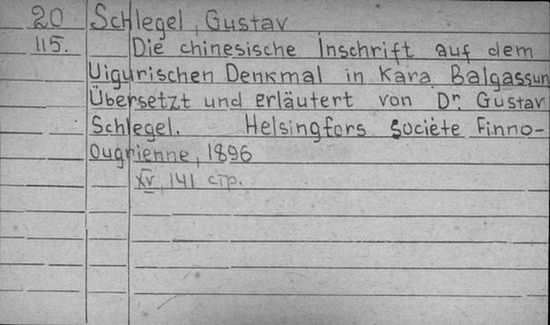 20 Schlegel, Gustav
115. Die chinesische Inschrift auf dem
Uigurischen Denkmal in Kara Balgassun
Übersetzt und erläutert von Dr. Gustav
Schlegel. Helsingfors Societe Finno-
Ougrienne, 1896
XV, 141 стр.